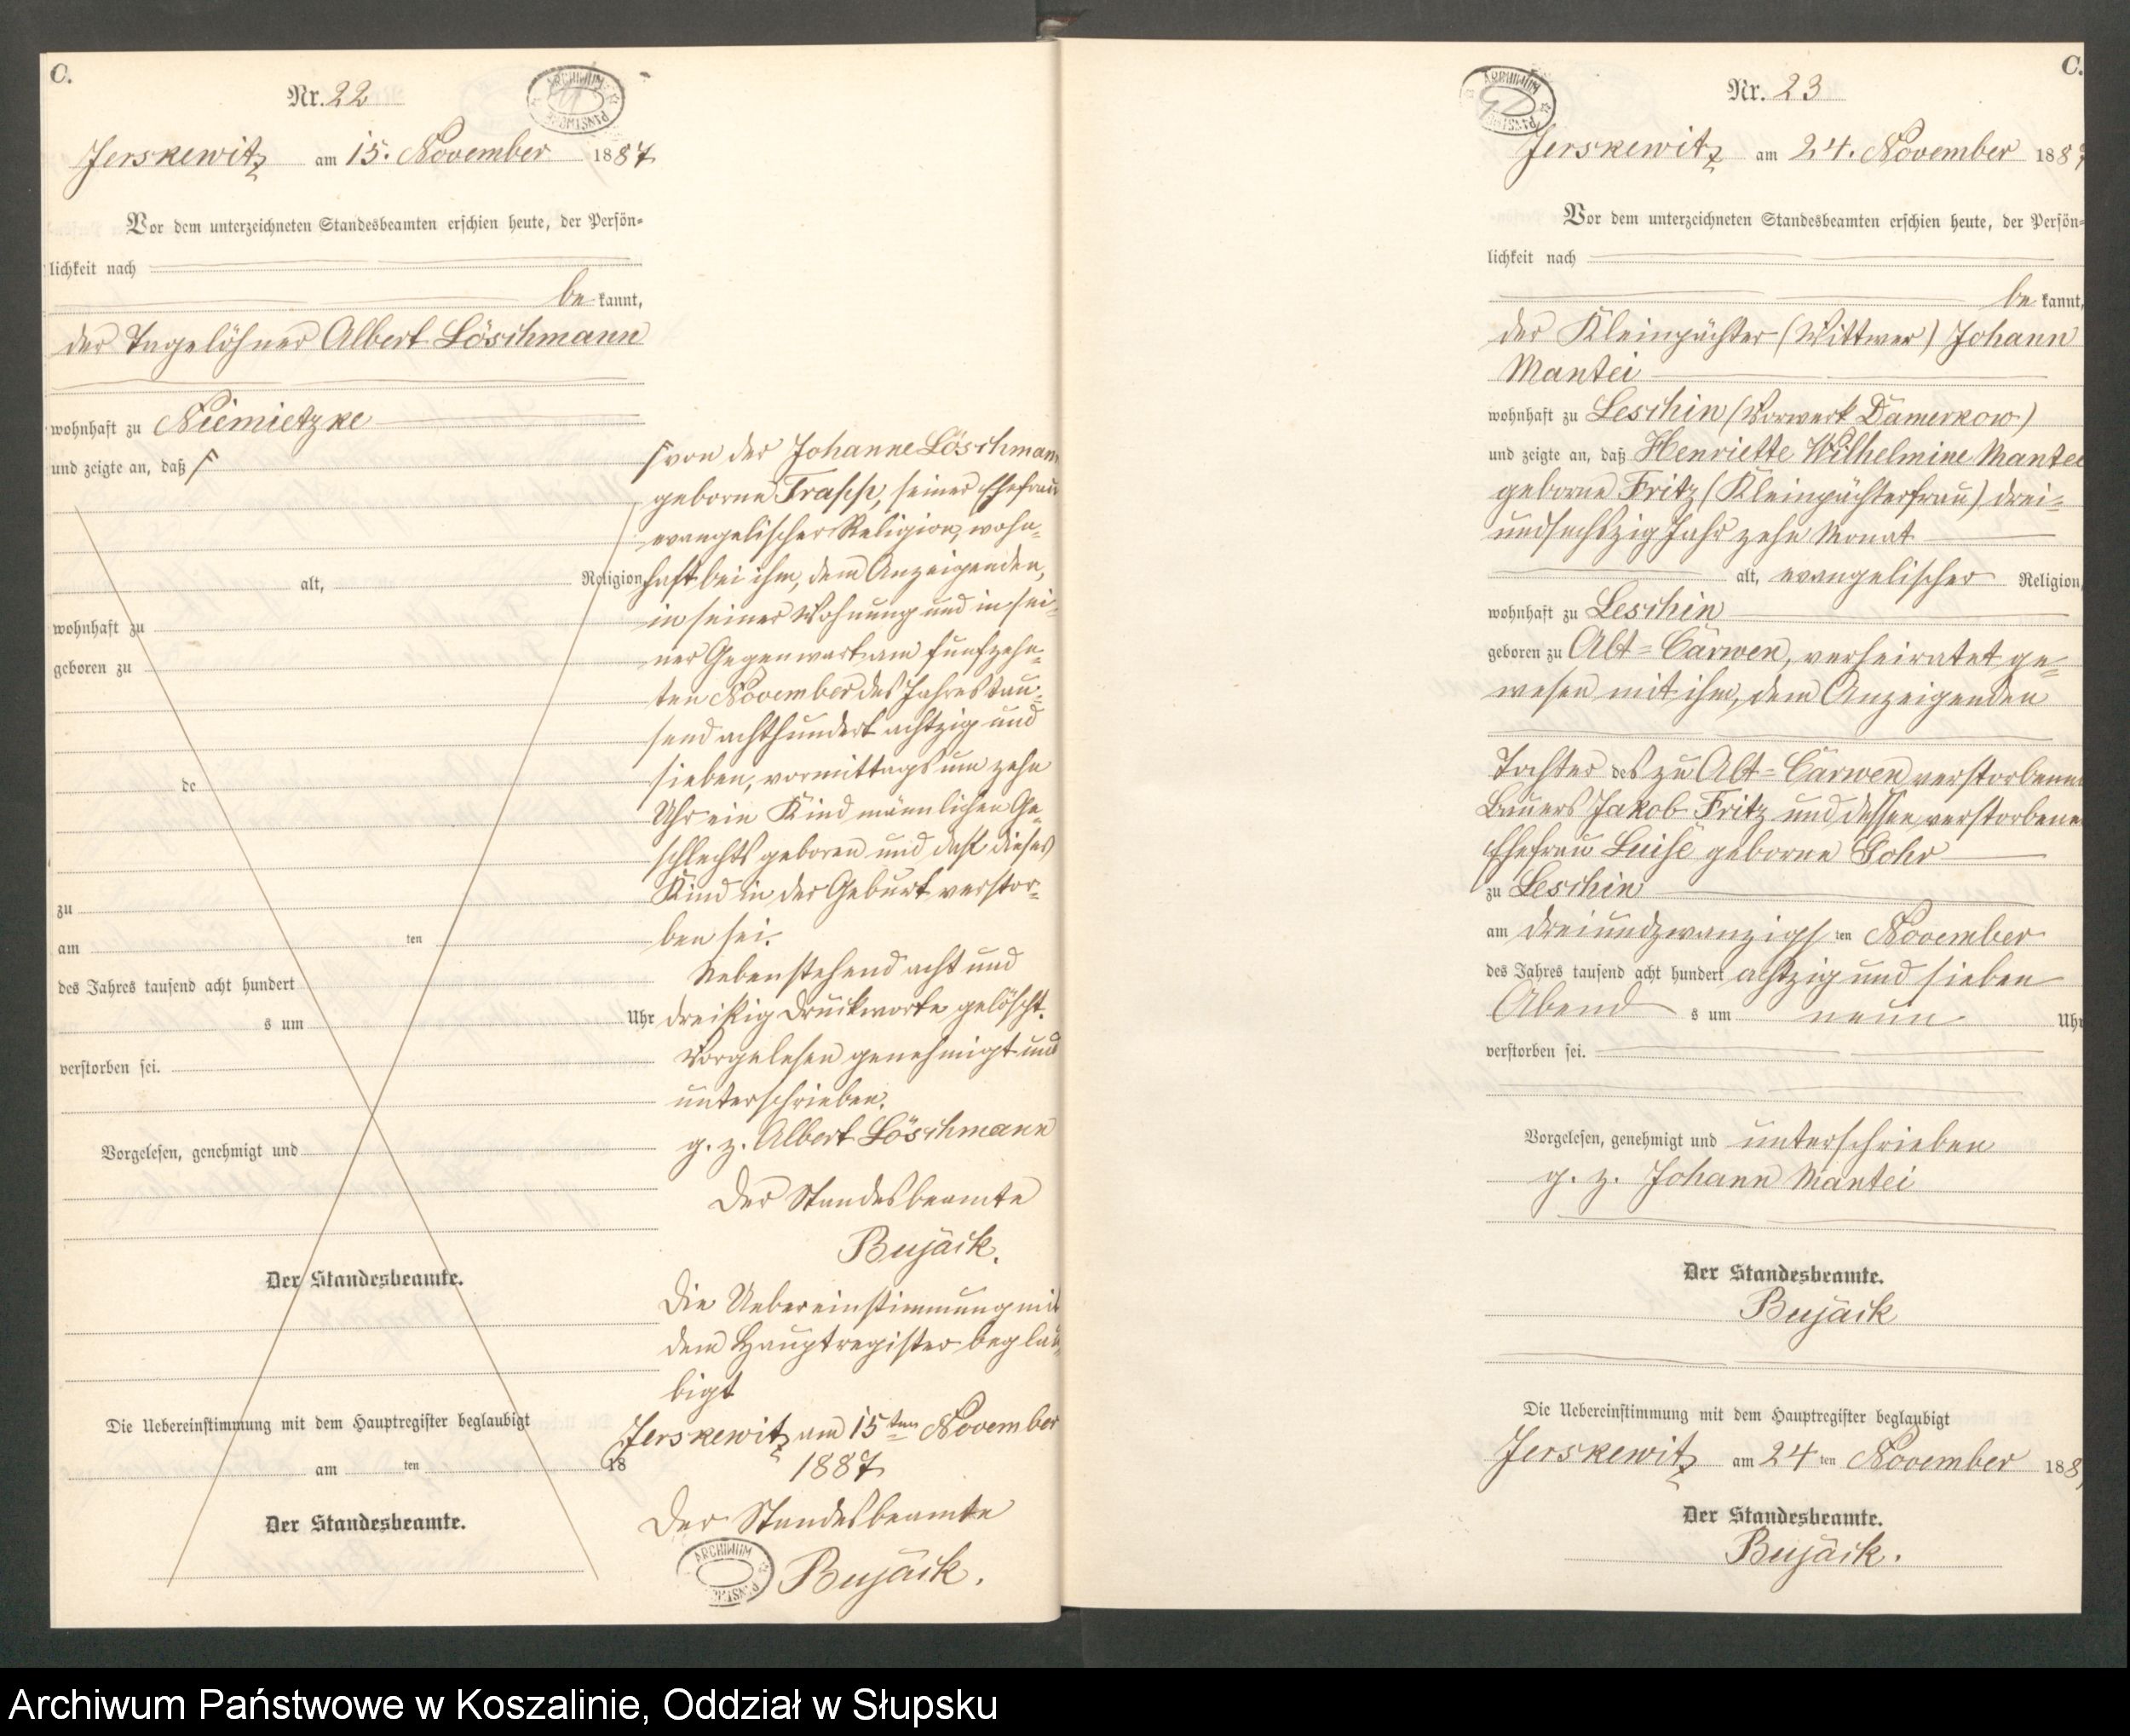 C.
Nr. 22
ARCHIWUM PAŃSTWOWE
Jerskewitz am 15. November 1887
Vor dem unterzeichneten Standesbeamten erschien heute, der Persön=
lichkeit nach
be kannt,
der Tagelöhner Albert Löschmann
wohnhaft zu Niemietzke
und zeigte an, daß
alt, Religion
wohnhaft zu
geboren zu
de
zu
am ten
des Jahres tausend acht hundert
s um Uhr
verstorben sei.
Vorgelesen, genehmigt und
Der Standesbeamte.
Die Uebereinstimmung mit dem Hauptregister beglaubigt
am ten 18
Der Standesbeamte.
von der Johanne Löschmann
geborne Trapp, seiner Ehefrau
evangelischer Religion, wohn=
haft bei ihm, dem Anzeigenden,
in seiner Wohnung und in sei=
ner Gegenwart am fünfzehn=
ten November des Jahres tau=
send achthundert achtzig und
sieben, vormittags um zehn
Uhr ein Kind männlichen Ge=
schlechts geboren und daß dieses
Kind in der Geburt verstor=
ben sei.
Nebenstehend acht und
dreißig Druckworte gelöscht.
Vorgelesen genehmigt und
unterschrieben.
g. z. Albert Löschmann
Der Standesbeamte
Bujäck.
Die Uebereinstimmung mit
dem Hauptregister beglau=
bigt
Jerskewitz am 15ten November
1887
Der Standesbeamte
ARCHIWUM PAŃSTWOWE
Bujäck.
C.
Nr. 23
ARCHIWUM PAŃSTWOWE
Jerskewitz am 24. November 1887
Vor dem unterzeichneten Standesbeamten erschien heute, der Persön=
lichkeit nach
be kannt,
der Kleinpächter (Wittwer) Johann
Mantei
wohnhaft zu Leschin (Vorwerk Damerkow)
und zeigte an, daß Henriette Wilhelmine Mantei
geborne Fritz (Kleinpächterfrau) drei=
undsechszig Jahr zehn Monat
alt, evangelischer Religion,
wohnhaft zu Leschin
geboren zu Alt=Carwen, verheiratet ge=
wesen mit ihm, dem Anzeigenden
Tochter des zu Alt=Carwen verstorbenen
Bauers Jakob Fritz und dessen verstorbene
Ehefrau Luise geborne Gohr
zu Leschin
am dreiundzwanzigs ten November
des Jahres tausend acht hundert achtzig und sieben
Abend s um neun Uhr
verstorben sei.
Vorgelesen, genehmigt und unterschrieben
g. z. Johann Mantei
Der Standesbeamte.
Bujäck
Die Uebereinstimmung mit dem Hauptregister beglaubigt
Jerskewitz am 24 ten November 188
Der Standesbeamte.
Bujäck.
Archiwum Państwowe w Koszalinie, Oddział w Słupsku